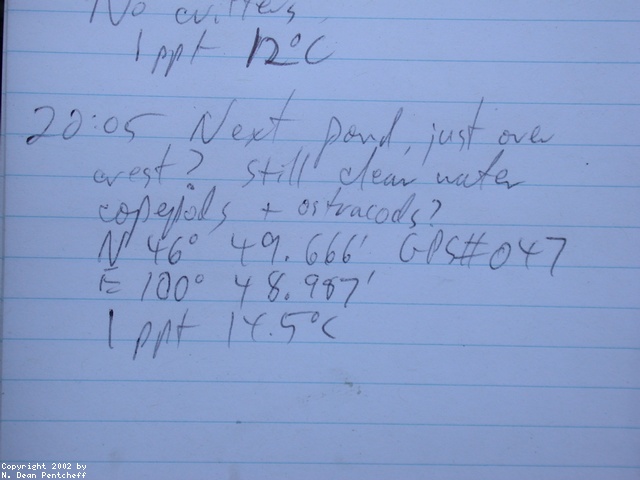 No critters
1 ppt 12°C
20:05 Next pond, just over
crest? Still clear water
copepods + ostracods?
N 46° 49.666' GPS#047
E 100° 48.987'
1 ppt 14.5°C
Copyright 2002 by
N. Dean Pentcheff